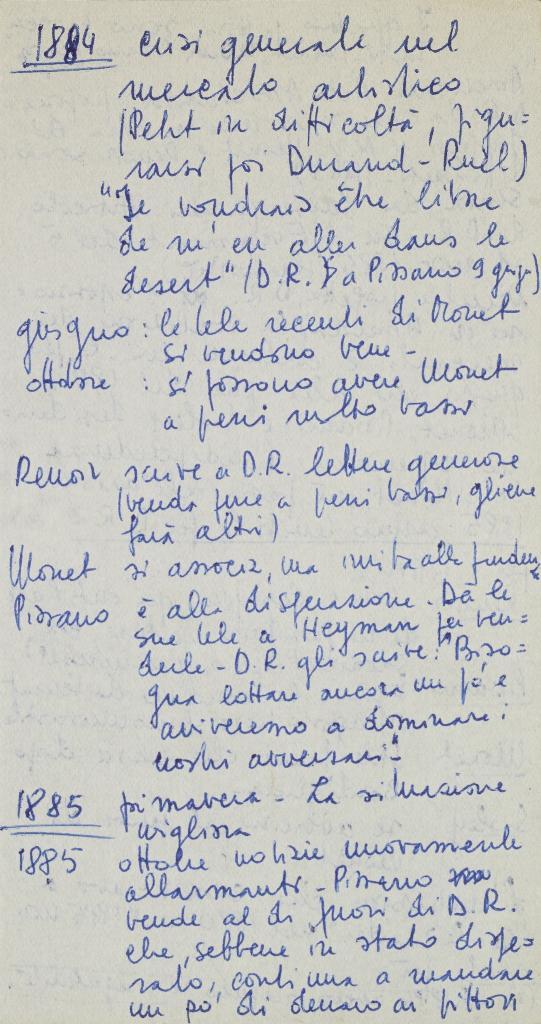 1884 crisi generale nel
mercato artistico
(Petit in difficoltà, figu-
rarsi poi Durand-Ruel)
"Je voudrais être libre
de m'en aller dans le
desert" (D.R. a Pissarro 9 giug)
giugno : le tele recenti di Monet
si vendono bene -
ottobre : si possono avere Monet
a prezzi molto bassi
Renoir scrive a D.R. lettere generose
(venda pure a prezzi bassi, gliene
farà altri)
Monet si associa, ma invita alla pruden
Pissarro è alla disperazione. Dà le
sue tele a Heyman per ven-
derle - D.R. gli scrive: "Biso-
gna lottare ancora un pò e
arriveremo a dominare i
nostri avversari"-
1885 primavera - La situazione
migliora
1885 ottobre notizie nuovamente
allarmanti - Pissarro
vende al di fuori di D.R.
che, sebbene in stato dispe-
rato, continua a mandare
un pò di denaro ai pittori